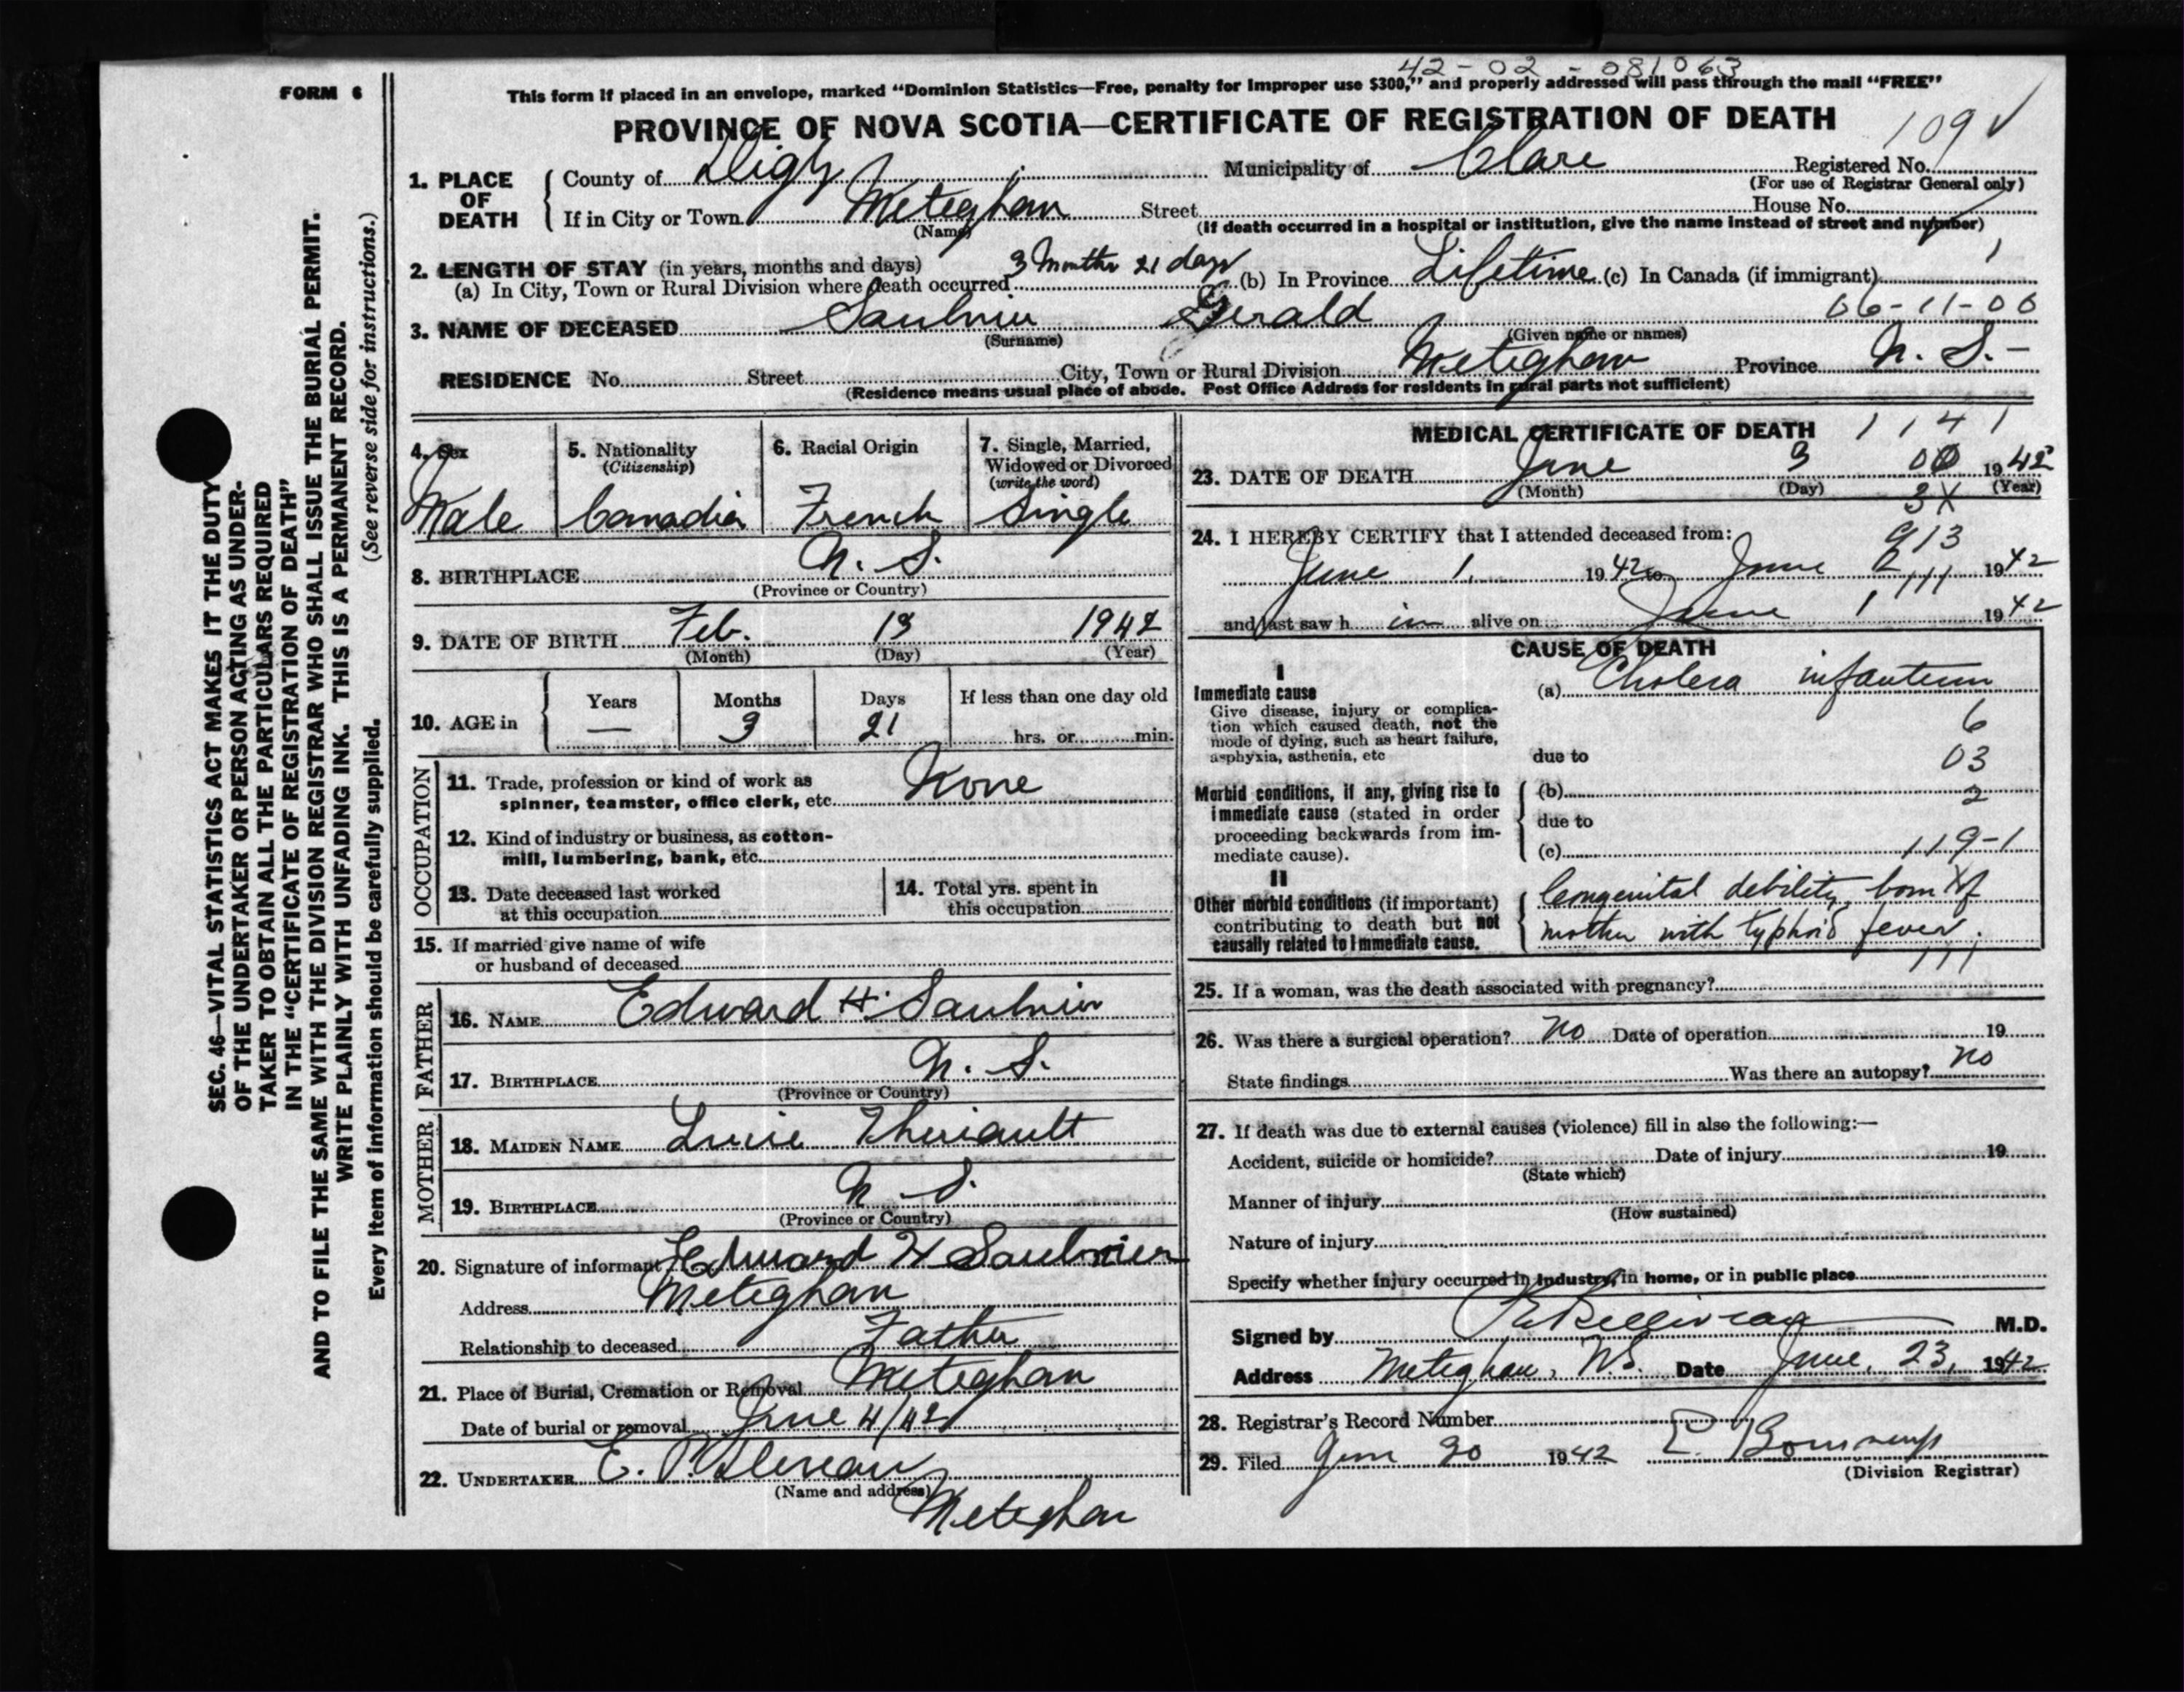 42-02-081063
FORM 6
This form if placed in an envelope, marked "Dominion Statistics—Free, penalty for Improper use $300," and properly addressed will pass through the mail "FREE"
PROVINCE OF NOVA SCOTIA—CERTIFICATE OF REGISTRATION OF DEATH
109 ✓
1. PLACE OF DEATH
County of Digby Municipality of Clare Registered No.
(For use of Registrar General only)
If in City or Town Meteghan Street House No.
(Name) (If death occurred in a hospital or institution, give the name instead of street and number)
2. LENGTH OF STAY (in years, months and days)
(a) In City, Town or Rural Division where death occurred 3 Months 21 days (b) In Province Lifetime (c) In Canada (if immigrant)
06-11-00
3. NAME OF DECEASED Saulnier Gerald
(Surname) (Given name or names)
RESIDENCE No. Street City, Town or Rural Division Meteghan Province N. S. -
(Residence means usual place of abode. Post Office Address for residents in rural parts not sufficient)
4. Sex
Male
5. Nationality
(Citizenship)
Canadian
6. Racial Origin
French
7. Single, Married,
Widowed or Divorced
(write the word)
Single
8. BIRTHPLACE N. S.
(Province or Country)
9. DATE OF BIRTH Feb. 13 1942
(Month) (Day) (Year)
10. AGE in
Years Months Days If less than one day old
— 3 21 hrs. or min.
OCCUPATION
11. Trade, profession or kind of work as
spinner, teamster, office clerk, etc. None
12. Kind of industry or business, as cotton-
mill, lumbering, bank, etc.
13. Date deceased last worked
at this occupation
14. Total yrs. spent in
this occupation
15. If married give name of wife
or husband of deceased
FATHER
16. NAME Edward H. Saulnier
17. BIRTHPLACE N. S.
(Province or Country)
MOTHER
18. MAIDEN NAME Theriault
19. BIRTHPLACE N. S.
(Province or Country)
20. Signature of informant Edward H Saulnier
Address Meteghan
Relationship to deceased Father
21. Place of Burial, Cremation or Removal Meteghan
Date of burial or removal June 4/42
22. UNDERTAKER E. P.
(Name and address)
Meteghan
MEDICAL CERTIFICATE OF DEATH 1141
23. DATE OF DEATH June 3 00 1942
(Month) (Day) (Year)
3X
24. I HEREBY CERTIFY that I attended deceased from:
913
June 1, 1942 to June 2 1942
111
and last saw h im alive on June 1 1942
CAUSE OF DEATH
I
Immediate cause
Give disease, injury or complica-
tion which caused death, not the
mode of dying, such as heart failure,
asphyxia, asthenia, etc
(a) Cholera infantum
6
due to 03
Morbid conditions, if any, giving rise to
immediate cause (stated in order
proceeding backwards from im-
mediate cause).
(b) 2
due to
(c) 119-1
II
Other morbid conditions (if important)
contributing to death but not
causally related to immediate cause.
Congenital debility, born of
mother with typhoid fever.
111
25. If a woman, was the death associated with pregnancy?
26. Was there a surgical operation? no Date of operation 19
State findings Was there an autopsy? no
27. If death was due to external causes (violence) fill in also the following:—
Accident, suicide or homicide? Date of injury 19
(State which)
Manner of injury
(How sustained)
Nature of injury
Specify whether injury occurred in industry, in home, or in public place
Signed by Belliveau M.D.
Address Meteghan, N.S. Date June, 23, 1942
28. Registrar's Record Number
29. Filed June 30 1942 E.
(Division Registrar)
SEC. 46—VITAL STATISTICS ACT MAKES IT THE DUTY
OF THE UNDERTAKER OR PERSON ACTING AS UNDER-
TAKER TO OBTAIN ALL THE PARTICULARS REQUIRED
IN THE "CERTIFICATE OF REGISTRATION OF DEATH"
AND TO FILE THE SAME WITH THE DIVISION REGISTRAR WHO SHALL ISSUE THE BURIAL PERMIT.
WRITE PLAINLY WITH UNFADING INK. THIS IS A PERMANENT RECORD.
Every item of information should be carefully supplied. (See reverse side for instructions.)